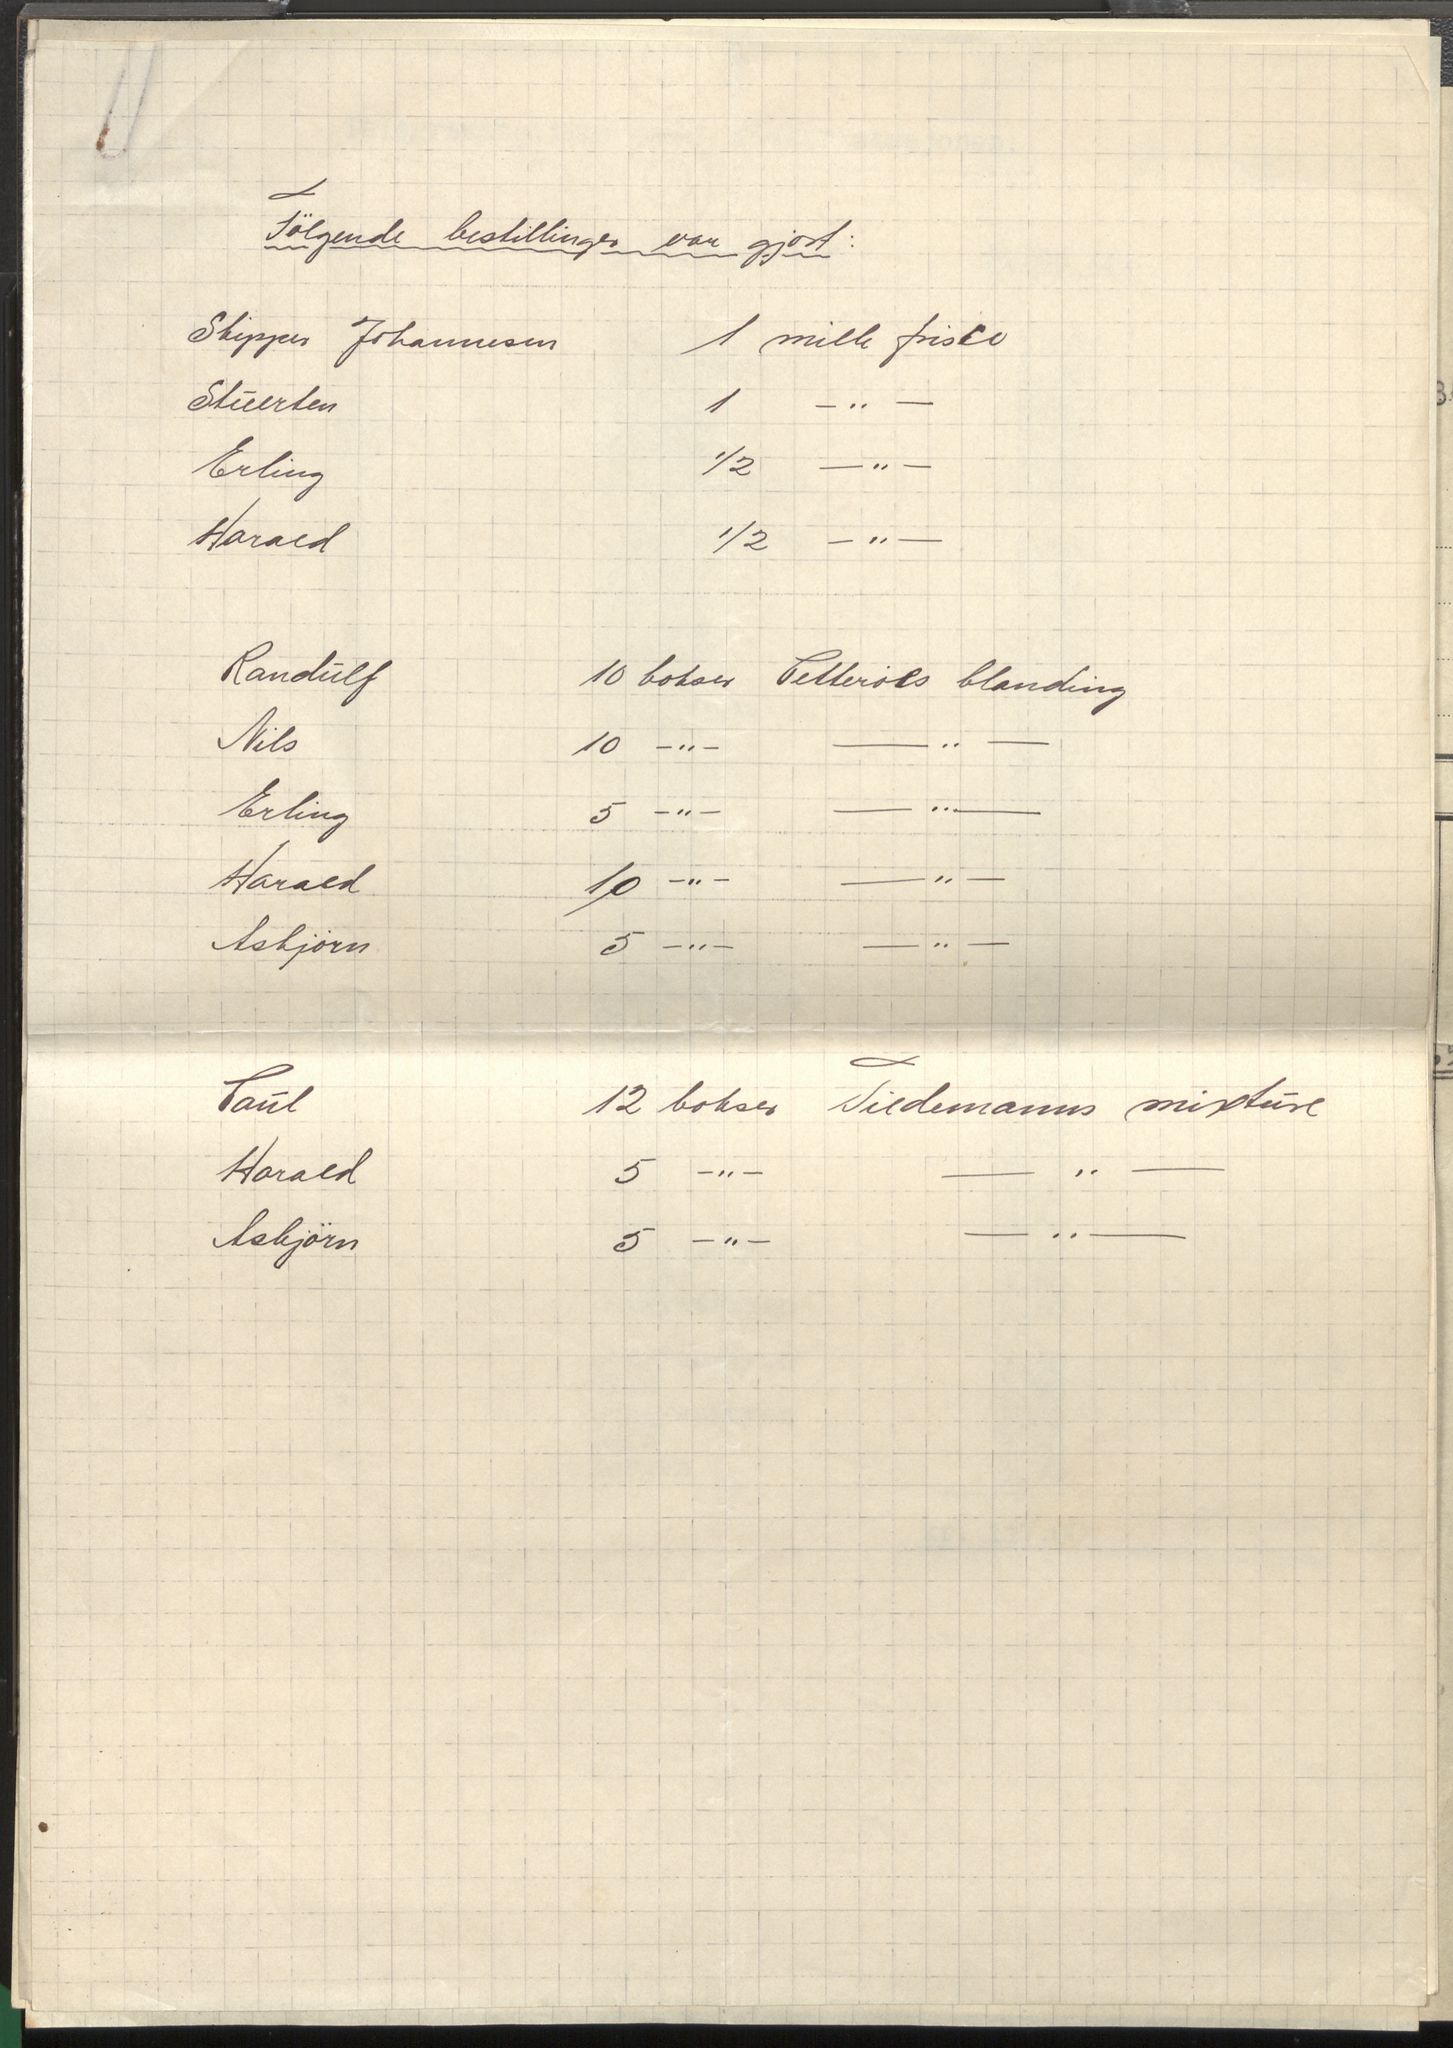 Følgende bestillinger var gjort:
Skipper Johannesen 1 mille frisco
Stuerten 1 — " —
Erling 1/2 — " —
Harald 1/2 — " —
Randulf 10 bokser Petterøes blanding
Nils 10 — " — — " —
Erling 5 — " — — " —
Harald 10 — " — — " —
Asbjørn 5 — " — — " —
Paul 12 bokser Tiedemanns mixture
Harald 5 — " — — " —
Asbjørn 5 — " — — " —